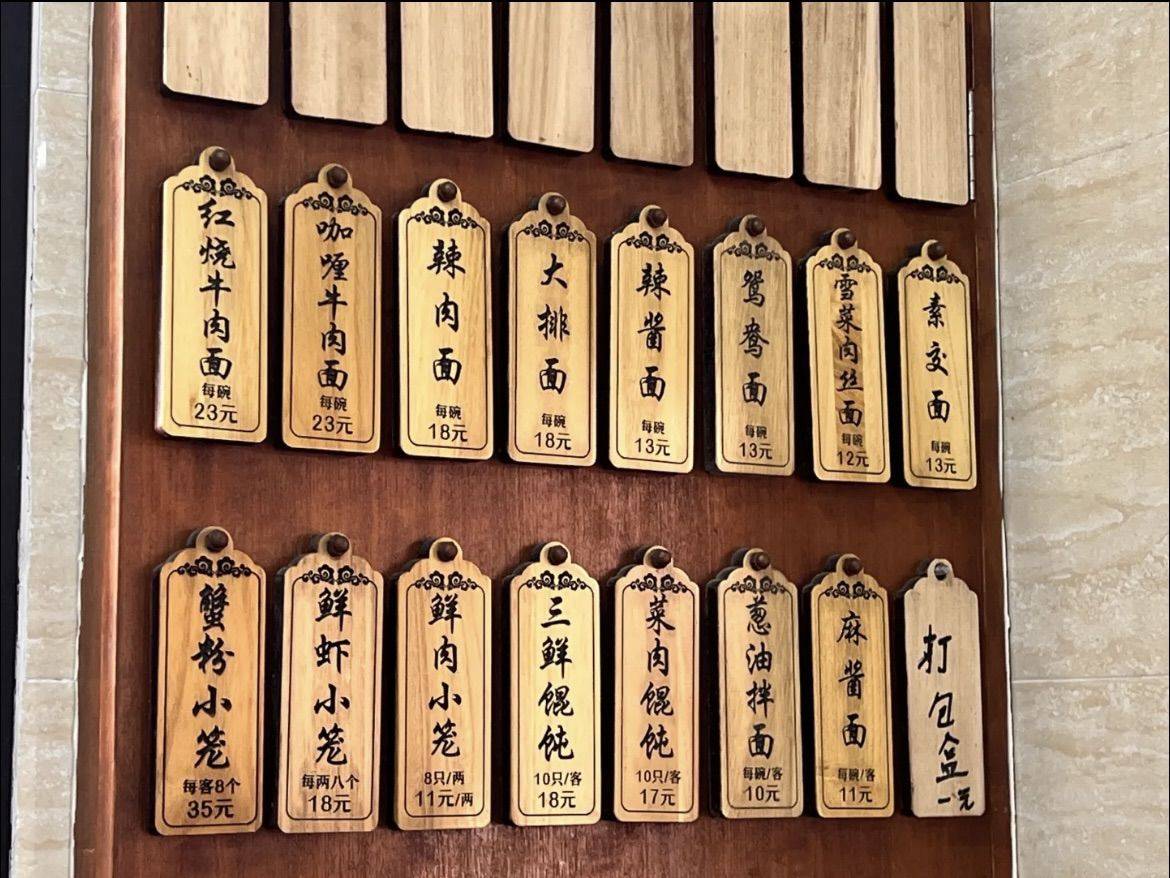 红烧牛肉面
每碗
23元
咖喱牛肉面
每碗
23元
辣肉面
每碗
18元
大排面
每碗
18元
辣酱面
每碗
13元
鸳鸯面
每碗
13元
雪菜肉丝面
每碗
12元
素交面
每碗
13元
蟹粉小笼
每客8个
35元
鲜虾小笼
每两八个
18元
鲜肉小笼
8只/两
11元/两
三鲜馄饨
10只/客
18元
菜肉馄饨
10只/客
17元
葱油拌面
每碗/客
10元
麻酱面
每碗/客
11元
打包盒
一元